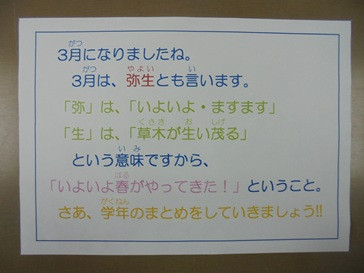 3月になりましたね。
3月は、弥生とも言います。
「弥」は、「いよいよ・ますます」
「生」は、「草木が生い茂る」
という意味ですから、
「いよいよ春がやってきた！」ということ。
さあ、学年のまとめをしていきましょう!!